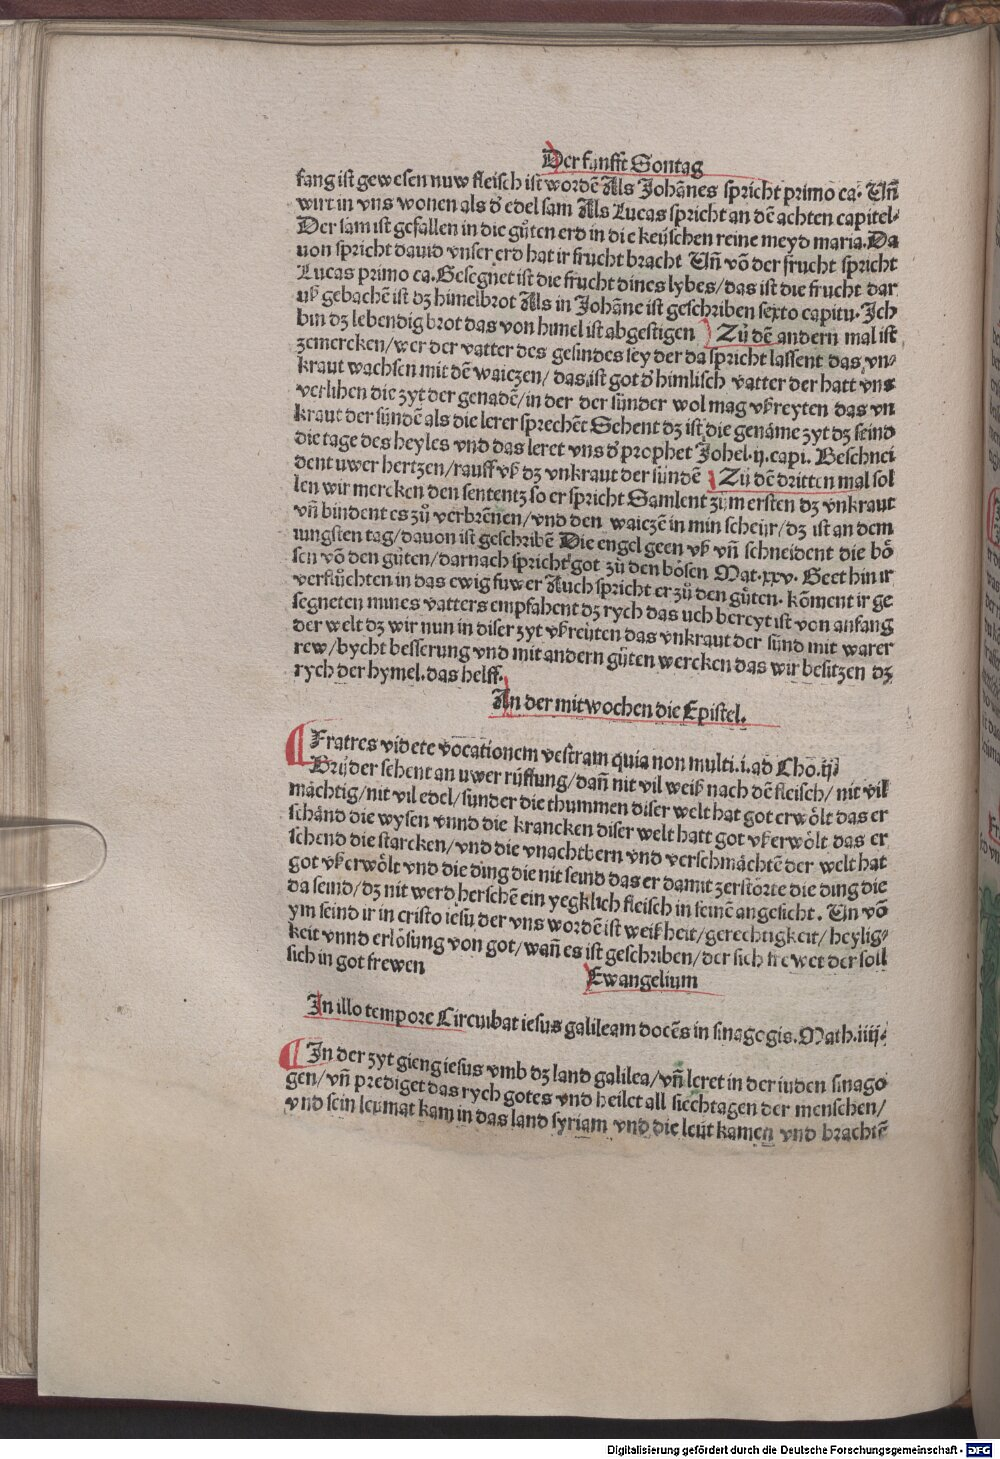 Der fünfft Sontag
fang ist gewesen nuw fleisch ist wordē Als Johānes spricht primo ca. Vñ
wirt in vns wonen als d' edel sam Als Lucas spricht an dē achten capitel.
Der sam ist gefallen in die gůten erd in die keüschen reine meyd maria. Da
uon spricht dauid vnser erd hat ir frucht bracht Vñ vō der frucht spricht
Lucas primo ca. Gesegnet ist die frucht dines lybes/das ist die frucht dar
uß gebachē ist dz himelbrot Als in Johāne ist geschriben sexto capitu. Ich
bin dz lebendig brot das von himel ist abgestigen Zů dē andern mal ist
zemercken/wer der vatter des gesindes sey der da spricht lassent das vn⸗
kraut wachsen mit dē waiczen/das ist got d' himlisch vatter der hatt vns
verlihen die zyt der genadē/in der der sünder wol mag vßreyten das vn
kraut der sündē als die lerer sprechēt Sehent dz ist die genäme zyt dz seind
die tage des heyles vnd das leret vns d' prophet Johel.ij.capi. Beschnei
dent uwer hertzen/rauff vß dz vnkraut der sündē Zů dē dritten mal sol
len wir mercken den sententz so er spricht Samlent zům ersten dz vnkraut
vñ bindent es zů verbrēnen/vnd den waiczē in min scheür/dz ist an dem
iungsten tag/dauon ist geschribē Die engel geen vß vñ schneident die bö
sen vō den gůten/darnach spricht got zů den bösen Mat.xxv. Geet hin ir
verflůchten in das ewig fuwer Auch spricht er zů den gůten. kōment ir ge
segneten mines vatters empfahent dz rych das uch bereyt ist von anfang
der welt dz wir nun in diser zyt vßreüten das vnkraut der sünd mit warer
rew/bycht besserung vnd mit andern gůten wercken das wir besitzen dz
rych der hymel.das helff.
In der mitwochen die Epistel.
Fratres videte vocationem vestram quia non multi.i.ad Cho.ij
Brüder sehent an uwer rüffung/dañ nit vil weiß nach dē fleisch/nit vil
mächtig/nit vil edel/sunder die thummen diser welt hat got erwölt das er
schänd die wysen vnnd die krancken diser welt hatt got vßerwölt das er
schend die starcken/vnd die vnachtbern vnd verschmächtē der welt hat
got vßerwölt vnd die ding die nit seind das er damit zerstörte die ding die
da seind/dz nit werd herschē ein yegklich fleisch in seinē angesicht. Vn vō
ym seind ir in cristo iesu der vns wordē ist weißheit/gerechtigkeit/heylig⸗
keit vnnd erlösung von got/wañ es ist geschriben/der sich frewet der soll
sich in got frewen
Ewangelium
In illo tempore Circuibat iesus galileam docēs in sinagogis.Math.iiij.
In der zyt gieng iesus vmb dz land galilea/vñ leret in der iuden sinago
gen/vñ prediget das rych gotes vnd heilet all siechtagen der menschen/
vnd sein leumat kam in das land syriam vnd die leüt kamen vnd brachtē
Digitalisierung gefördert durch die Deutsche Forschungsgemeinschaft - DFG